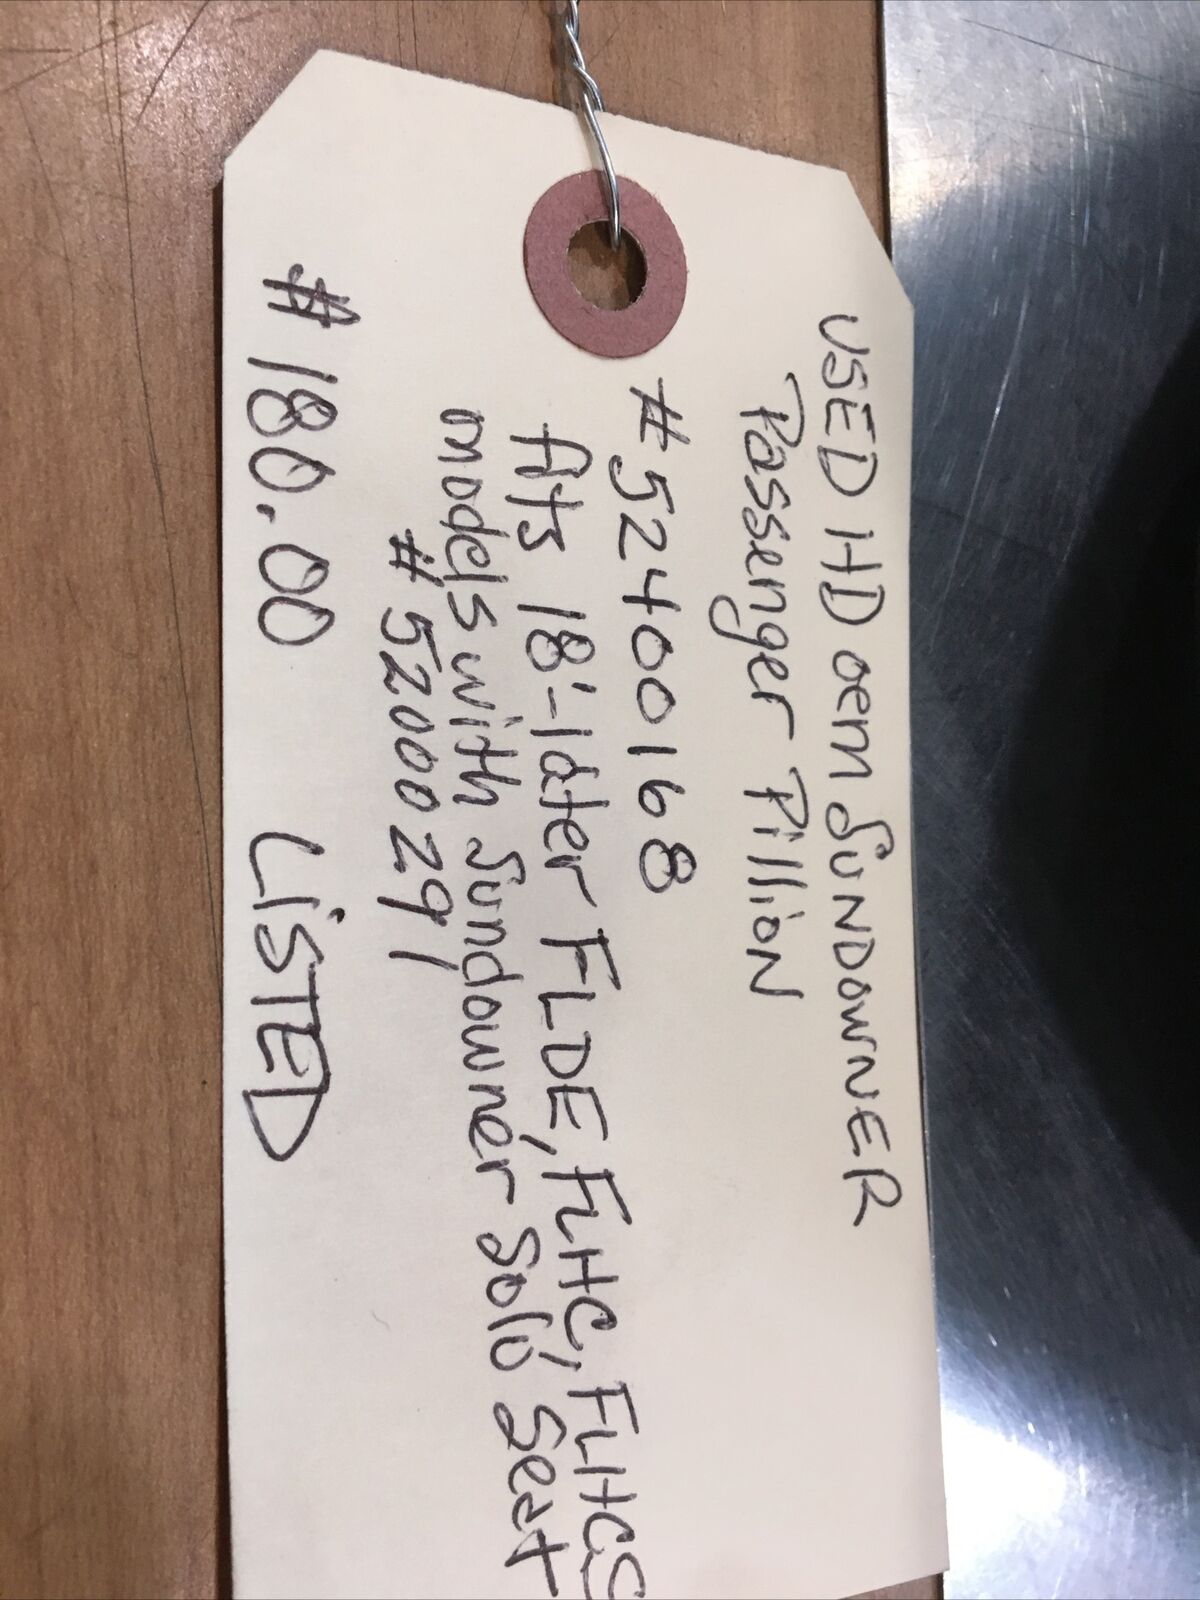 USED HD oem SUNDOWNER
Passenger Pillion
#52400168
fits 18'-later FLDE, FLHC, FLHCS
models with Sundowner Solo Seat
#5200029 1
#180.00 LiSTED